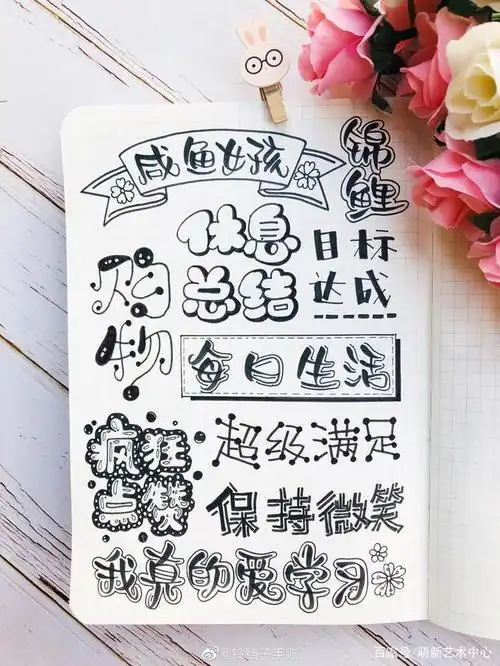 咸鱼女孩
锦鲤
休息
总结
目标
达成
购物
每日生活
疯狂
点赞
超级满足
保持微笑
我真的爱学习
@铃铛子手账
百家号/萌新艺术中心